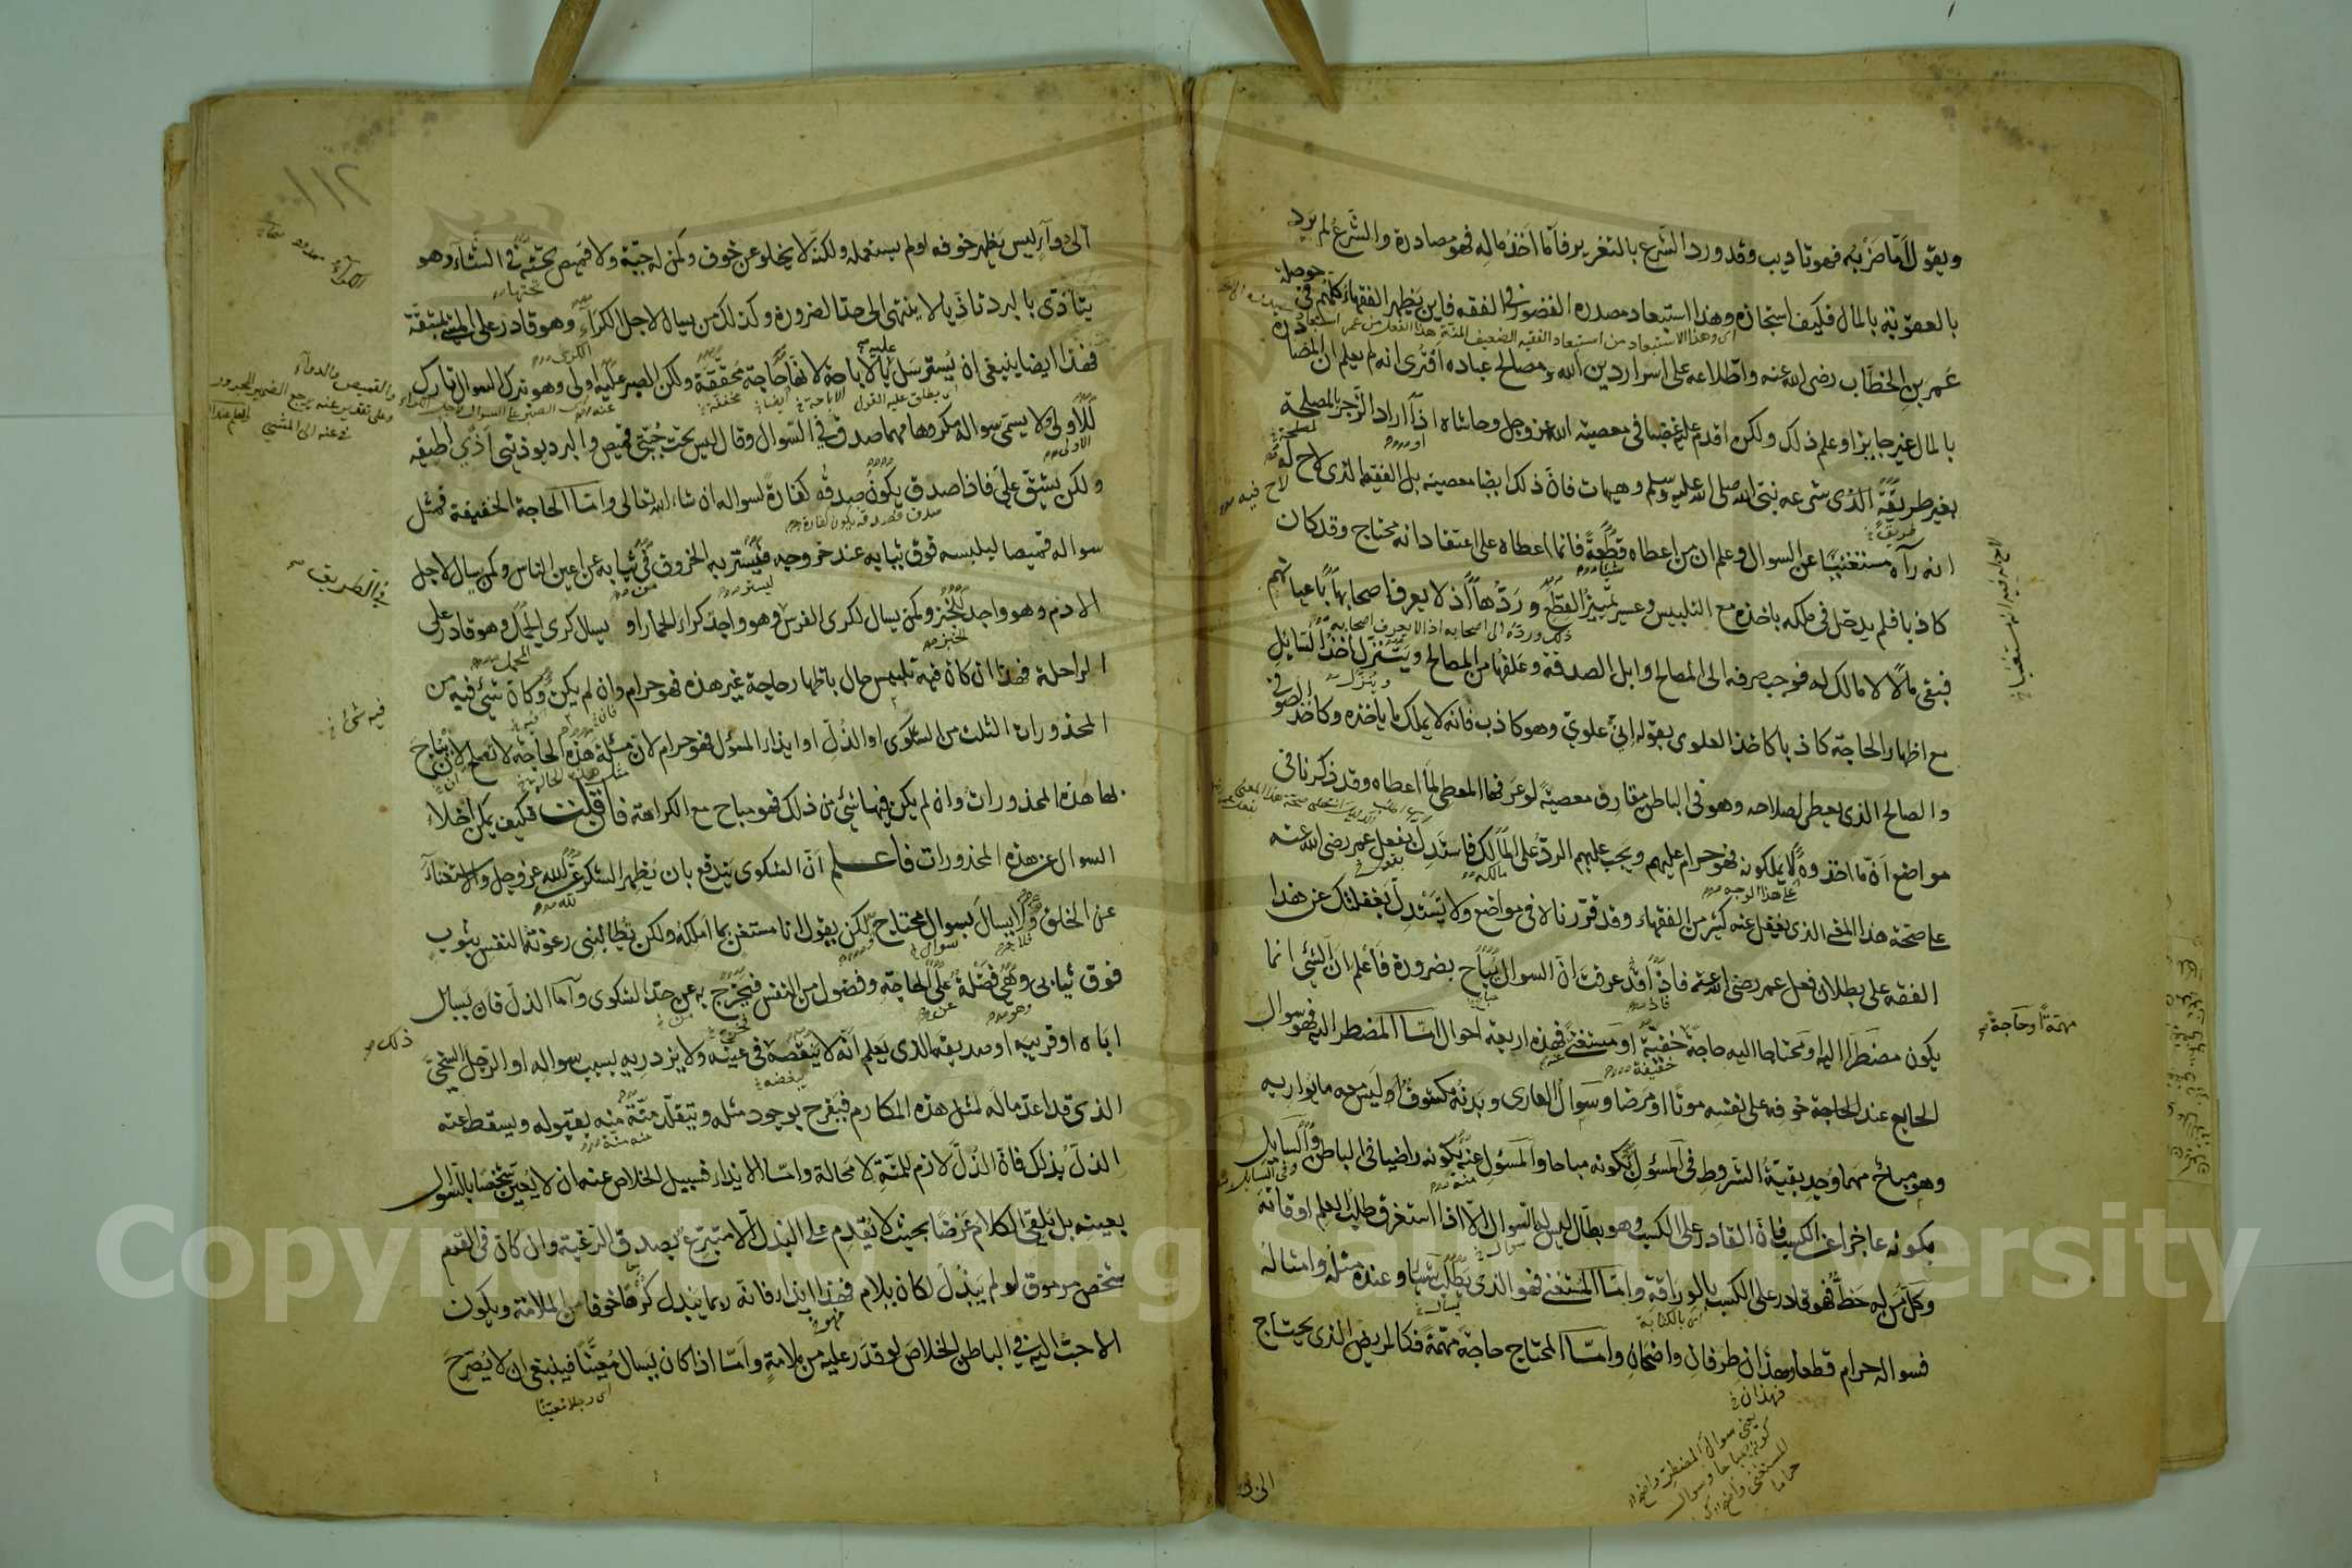 ويقول اما ضربه فهو تاديب وقد ورد الشرع بالتعزير فاما اخذ ماله فهو مصادرة والشرع لم يرد
بالعقوبة بالمال فكيف استجازه وهذا استبعاد مصدره القصور في الفقه فاين يظهر الفقهاء كلهم في حوصلة
عمر بن الخطاب رضى الله عنه واطلاعه على اسرار دين الله ومصالح عباده افترى انه لم يعلم ان المصادرة
بالمال غير جايز او علم ذلك ولكن اقدم عليه غضبا في معصية الله عز وجل وحاشاه او اراد الزجر بالمصلحة
بغير طريقة الذى شرعه نبي الله صلى الله عليه وسلم وهيهات فان ذلك ايضا معصية بل الفقه الذى لاح له
انه رآه مستغنيا عن السوال وعلم ان من اعطاه قطعة فانما اعطاه على اعتقاد انه محتاج وقد كان
كاذبا فلم يدخل في ملكه باخذه مع التلبيس وعسر تمييز القطع وردها اذ لا يعرف اصحابها باعيانهم
فبقى مالا لا مالك له فوجب صرفه الى المصالح وابل الصدقة وعلفها من المصالح ويتنزل اخذ السايل
مع اظهار الحاجة كاذبا كاخذ العلوى بقوله انى علوي وهو كاذب فانه لا يملك ما ياخذه وكاخذ الصوفي
والصالح الذى يعطى لصلاحه وهو في الباطن مقارف معصية لو عرفها المعطى لما اعطاه وقد ذكرنا في
مواضع ان ما اخذوه لا يملكونه فهو حرام عليهم ويجب عليهم الرد على المالك فاستدل بفعل عمر رضى الله عنه
على صحة هذا المعنى الذى يغفل عنه كثير من الفقهاء وقد قررناه في مواضع ولا تستدل بغفلتك عن هذا
الفقه على بطلان فعل عمر رضى الله عنه فاذا قد عرفت ان السوال يباح بضرورة فاعلم ان الشئ انما
يكون مضطرا اليه او محتاجا اليه حاجة خفيفة او مستغنى فهذه اربعة احوال اما المضطر اليه فهو سوال
مهمة او حاجة
الجايع عند الحاجة خوفه على نفسه موتا او مرضا وسوال العارى وبدنه مكشوف وليس معه ما يواريه
وهو مباح مهما وجد بقية الشروط في المسؤل بكونه مباحا والمسؤل عنه بكونه راضيا في الباطن والسايل
بكونه عاجزا عن الكسب فان القادر على الكسب وهو بطال ليس له السوال الا اذا استغرق طلب العلم اوقاته
وكل من له خط فهو قادر على الكسب بالوراقة واما المستغنى فهو الذى يطلب شيئا وعنده مثله وامثاله
فسواله حرام قطعا وهذان طرفان واضحان واما المحتاج حاجة مهمة فكالمريض الذى يحتاج
فهذان
يعنى سوال المضطر واضح
كونه مباحا وسوال
المستغنى واضح
حراما
الى دواء ليس يظهر خوفه لو لم يستعمله ولكن لا يخلو عن خوف وكمن له جبة ولا قميص تحته في الشتاء وهو
يتاذى بالبرد تاذيا لا ينتهى الى حد الضرورة وكذلك من يسال لاجل الكراء وهو قادر على المشي بمشقة
فهذا ايضا ينبغى ان يسترسل بالاباحة لانها حاجة محققة ولكن الصبر عليه اولى وهو بترك السوال تارك
للاولى ولا يسمى سواله مكروها مهما صدق في السوال وقال ليس تحت جبتي قميص والبرد يوذينى اذى اطيقه
ولكن يشق على فاذا صدق يكون صدقه كفارة لسواله ان شاء الله تعالى واما الحاجة الخفيفة فمثل
سواله قميصا ليلبسه فوق ثيابه عند خروجه فيستر به الخروق في ثيابه عن اعين الناس وكمن يسال لاجل
في الطريق
الادم وهو واجد للخبز وكمن يسال لكرى الفرس وهو واجد كراء الحمار او يسال كرى المحمل وهو قادر على
الراحلة فهذا ان كان فيه تلبيس حال باظهار حاجة غير هذه فهو حرام وان لم يكن وكان شئ فيه من
فيه شئ
المحذورات الثلث من الشكوى او الذل او ايذاء المسؤل فهو حرام لان مثل هذه الحاجة لا تصلح لان تباح
بها هذه المحذورات وان لم يكن فيها شئ من ذلك فهو مباح مع الكراهة فان قلت فكيف يمكن اخلاء
السوال عن هذه المحذورات فاعلم ان الشكوى يندفع بان يظهر الشكر لله عز وجل والاستغناء
عن الخلق ولا يسال بسوال محتاج لكن يقول انا مستغن بما املكه ولكن تطالبنى رعونة النفس بثوب
فوق ثيابى وهى فضلة على الحاجة وفضول من النفس فيخرج به عن حد الشكوى واما الذل فان يسال
ذلك
اباه او قريبه او صديقه الذى يعلم انه لا ينقصه في عينه ولا يزدريه بسبب سواله او الرجل السخي
الذى قد اعد ماله لمثل هذه المكارم فيفرح بوجود مثله ويتقلد منة منه بقبوله ويسقط عنه
الذل بذلك فان الذل لازم للمنة لا محالة واما الايذاء فسبيل الخلاص عنه ان لا يعين شخصا بالسوال
بعينه بل يلقى الكلام عرضا بحيث لا يقدم على البذل الا متبرع بصدق الرغبة وان كان في القوم
شخص مرموق لو لم يبذل لكان يلام فهذا ايذاء فانه ربما يبذل كرها خوفا من الملامة ويكون
الاحب اليه في الباطن الخلاص لو قدر عليه من ملامة واما اذا كان يسال معينا فينبغى ان لا يصرح
اى رجلا معينا
Copyright © King Saud University